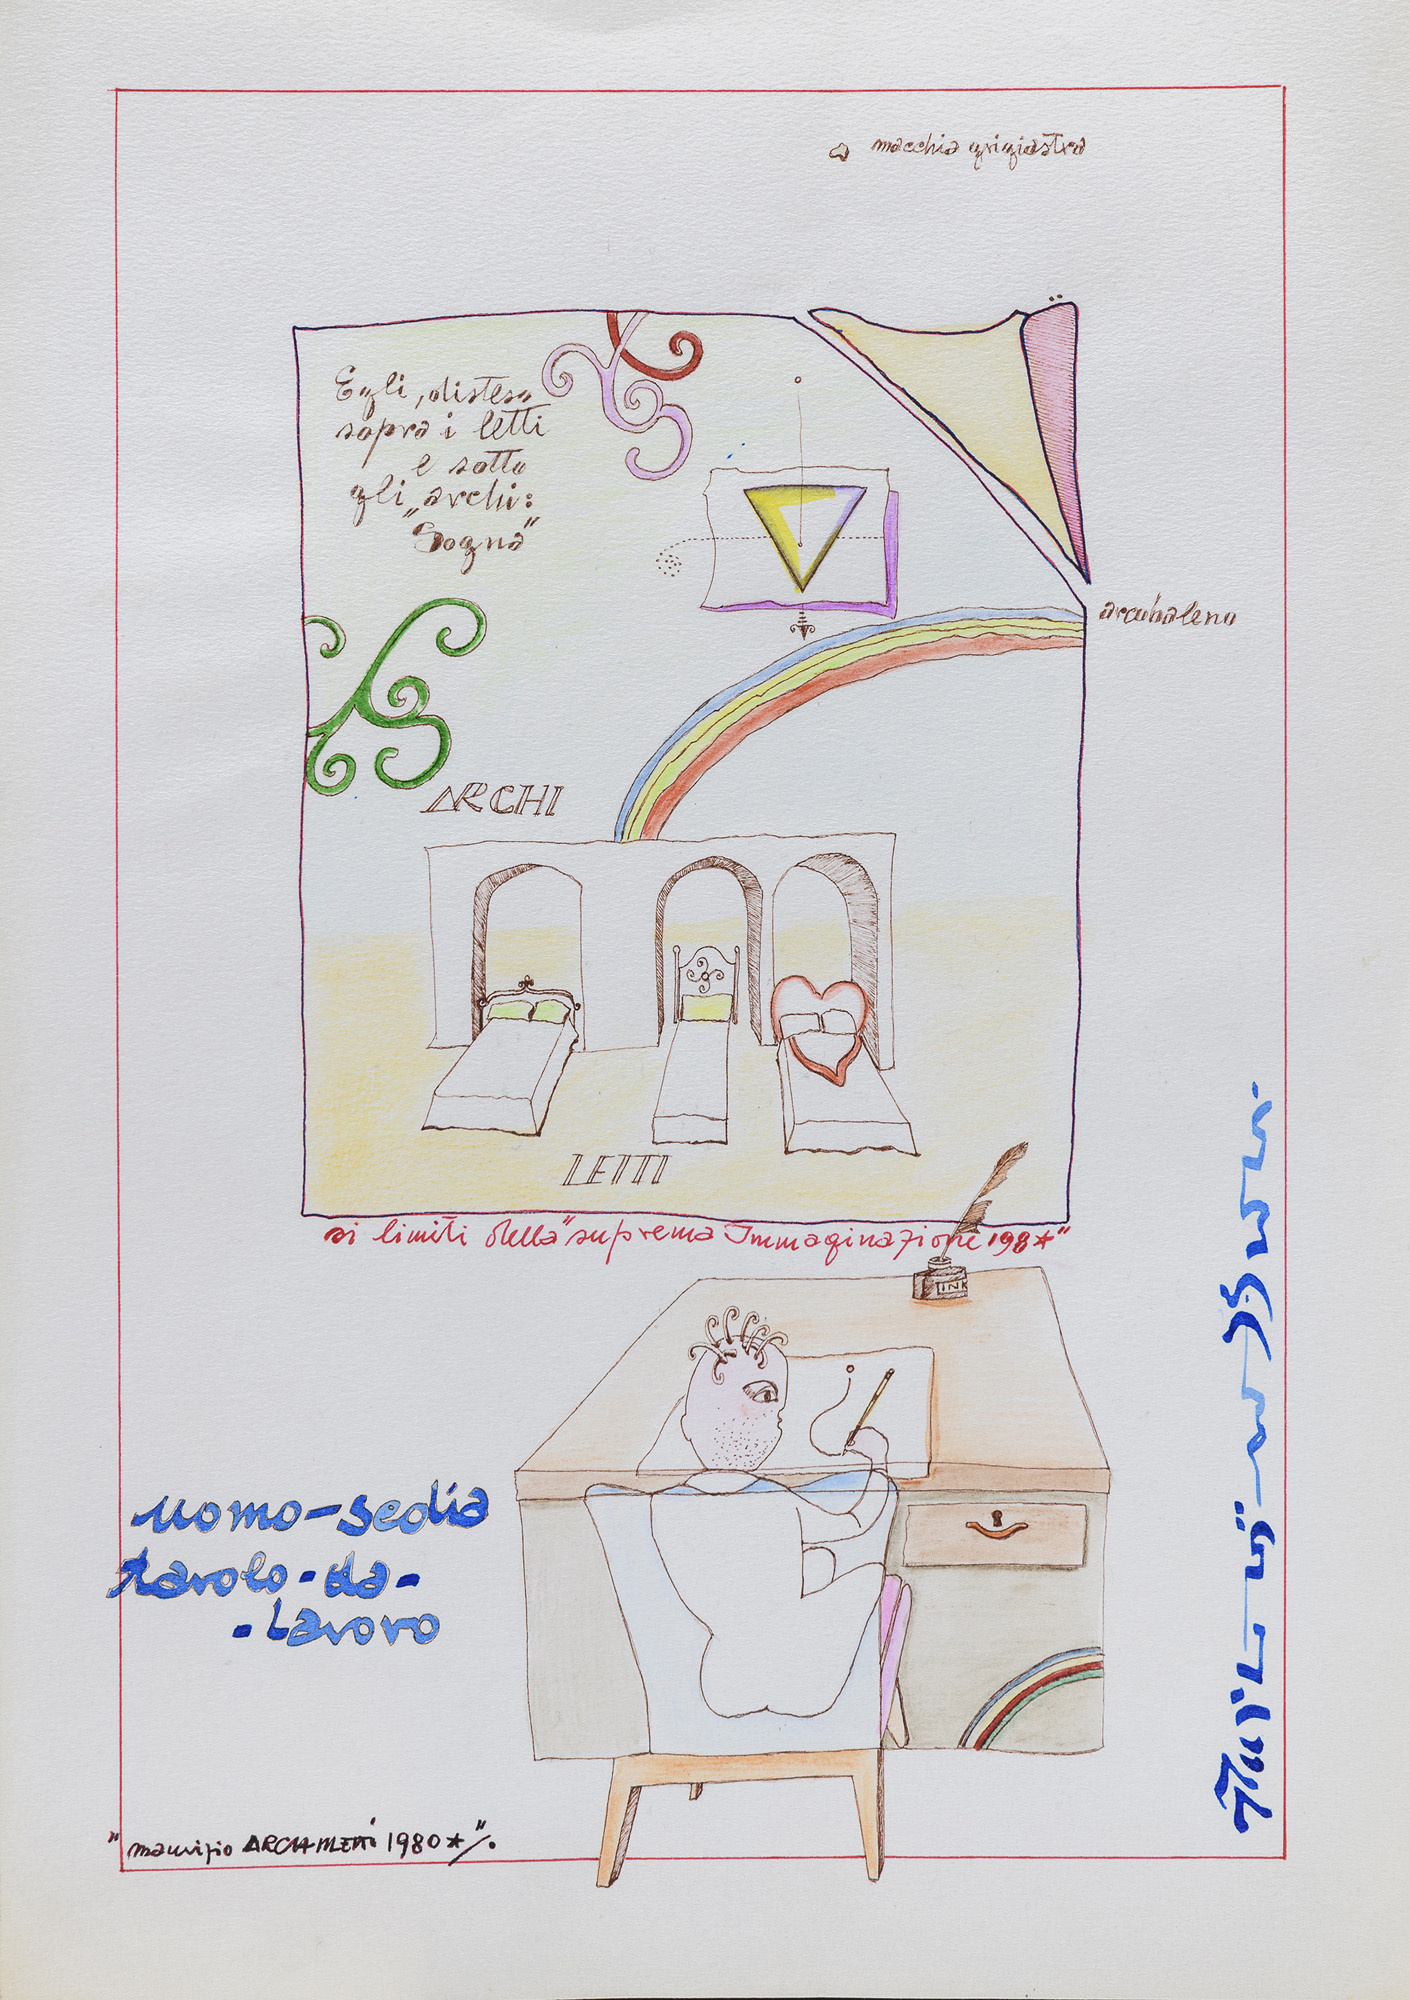 macchia grigiastra
Egli, disteso
sopra i letti
e sotto
gli „archi:
"Sogna"
arcobaleno
ARCHI
LETTI
ai limiti della "suprema Immaginazione 198*"
INK
uomo-sedia
tavolo-da-
-Lavoro
"maurizio 1980*"/.